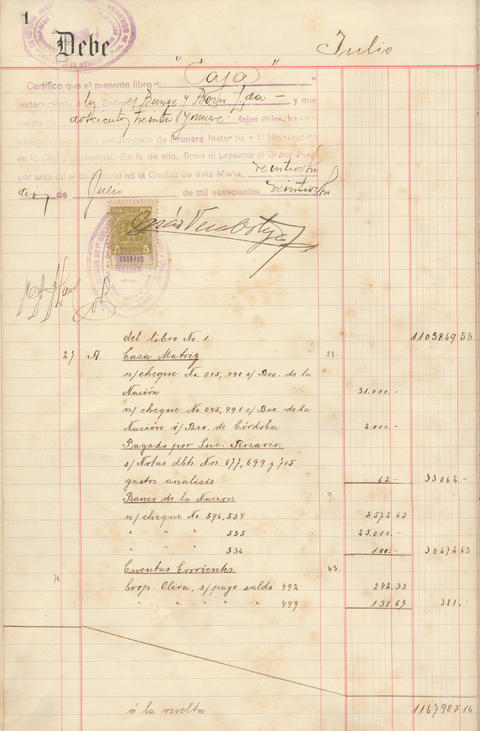 1
Debe
Julio
Certifico que el presente libro "Caja"
perteneciente á los Señores Bunge y Born Ltda - y que
consta de doscientos treinta y nueve fojas útiles, ha
del Juzgado de Primera Instancia y II Nominación
en lo Civil y Comercial. En fe de ello, firma el presente el Señor Juez
por ante mi en la Ciudad de Villa María, veintiocho
de Julio de mil novecientos veintiocho
5
del libro No. 1. 1103869.53
27 A. Casa Matriz 33.
n/ cheque No. 045,990 c/ Bco. de la
Nación 31.000.-
n/ cheque No 045,991 c/ Bco. de la
Nación ó/ Bco. de Córdoba 2.000.-
Pagado por Suc. Rosario.
s/ Notas dbts. Nos. 677, 699 y 705
gastos análisis 62.- 33062.-
Banco de la Nación 9.
n/ cheque No. 596,534 5572.63
" " " 535 25.000.-
" " " 536 100.- 30672.63
Cuentas Corrientes 63.
Coop. Oliva, s/ pago saldo 492 242.33
" " " " 449 138.67 381.-
á la vuelta 1167985.16